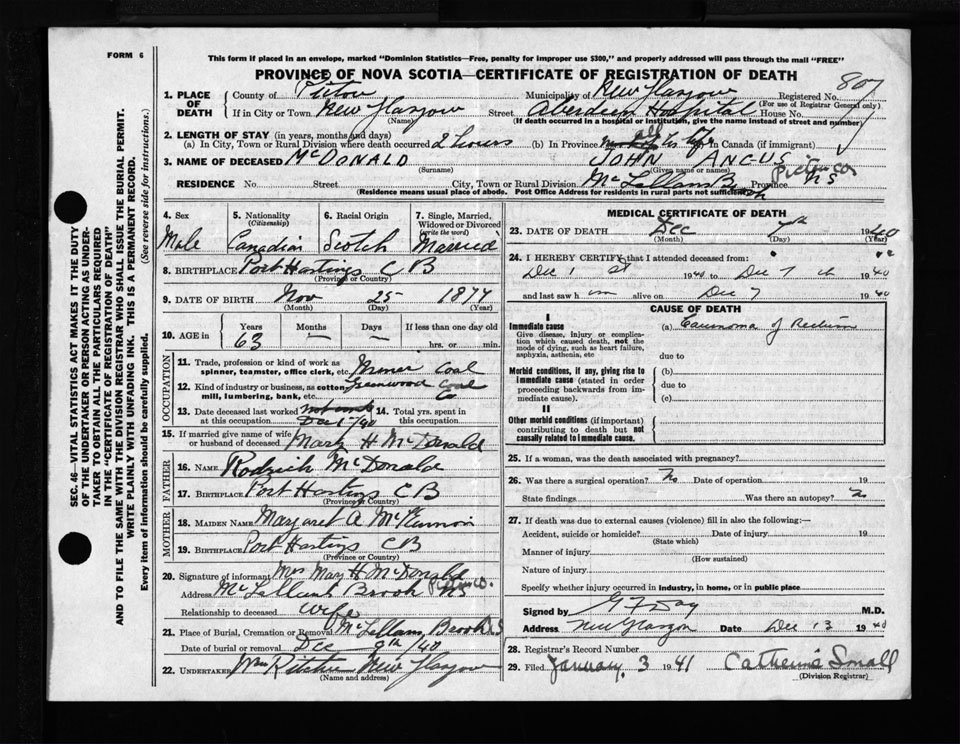 FORM 6
This form if placed in an envelope, marked "Dominion Statistics—Free, penalty for improper use $300," and properly addressed will pass through the mail "FREE"
PROVINCE OF NOVA SCOTIA—CERTIFICATE OF REGISTRATION OF DEATH
807
1. PLACE OF DEATH County of Pictou Municipality of New Glasgow Registered No.
(For use of Registrar General only)
If in City or Town New Glasgow Street Aberdeen Hospital House No.
(Name) (If death occurred in a hospital or institution, give the name instead of street and number)
2. LENGTH OF STAY (in years, months and days)
(a) In City, Town or Rural Division where death occurred 2 hours (b) In Province all his life In Canada (if immigrant)
3. NAME OF DECEASED McDONALD JOHN ANGUS
(Surname) (Given name or names)
Pictou Co
RESIDENCE No. Street City, Town or Rural Division McLellans Brook Province NS
(Residence means usual place of abode. Post Office Address for residents in rural parts not sufficient)
4. Sex Male
5. Nationality (Citizenship) Canadian
6. Racial Origin Scotch
7. Single, Married, Widowed or Divorced (write the word) Married
8. BIRTHPLACE Port Hastings C B
(Province or Country)
9. DATE OF BIRTH Nov 25 1877
(Month) (Day) (Year)
10. AGE in Years 63 Months — Days — If less than one day old hrs. or min.
OCCUPATION
11. Trade, profession or kind of work as spinner, teamster, office clerk, etc. Miner Coal
12. Kind of industry or business, as cotton mill, lumbering, bank, etc. Greenwood Coal Co
13. Date deceased last worked at this occupation Dec 1/40
14. Total yrs. spent in this occupation
15. If married give name of wife or husband of deceased Mary H McDonald
FATHER
16. NAME Rodrich McDonald
17. BIRTHPLACE Port Hastings C B
(Province or Country)
MOTHER
18. MAIDEN NAME Margaret A McKinnon
19. BIRTHPLACE Port Hastings C B
(Province or Country)
20. Signature of informant Mrs Mary H McDonald
Address McLellans Brook Pictou Co. NS
Relationship to deceased wife
21. Place of Burial, Cremation or Removal McLellans Brook NS
Date of burial or removal Dec 9th/40
22. UNDERTAKER Wm Ritchie New Glasgow
(Name and address)
MEDICAL CERTIFICATE OF DEATH
23. DATE OF DEATH Dec 7th 1940
(Month) (Day) (Year)
24. I HEREBY CERTIFY that I attended deceased from:
Dec 1 st 1940 to Dec 7 th 1940
and last saw him alive on Dec 7 1940
CAUSE OF DEATH
I
Immediate cause
Give disease, injury or complication which caused death, not the mode of dying, such as heart failure, asphyxia, asthenia, etc
(a) Carcinoma of Rectum
due to
Morbid conditions, if any, giving rise to immediate cause (stated in order proceeding backwards from immediate cause).
(b)
due to
(c)
II
Other morbid conditions (if important) contributing to death but not causally related to immediate cause.
25. If a woman, was the death associated with pregnancy?
26. Was there a surgical operation? No Date of operation 19
State findings Was there an autopsy? No
27. If death was due to external causes (violence) fill in also the following:—
Accident, suicide or homicide? Date of injury 19
(State which)
Manner of injury
(How sustained)
Nature of injury
Specify whether injury occurred in industry, in home, or in public place
Signed by G F Day M.D.
Address New Glasgow Date Dec 13 1940
28. Registrar's Record Number
29. Filed January 3 1941 Catherine Small
(Division Registrar)
SEC. 46—VITAL STATISTICS ACT MAKES IT THE DUTY
OF THE UNDERTAKER OR PERSON ACTING AS UNDER-
TAKER TO OBTAIN ALL THE PARTICULARS REQUIRED
IN THE "CERTIFICATE OF REGISTRATION OF DEATH"
AND TO FILE THE SAME WITH THE DIVISION REGISTRAR WHO SHALL ISSUE THE BURIAL PERMIT.
WRITE PLAINLY WITH UNFADING INK. THIS IS A PERMANENT RECORD.
Every item of information should be carefully supplied. (See reverse side for instructions.)